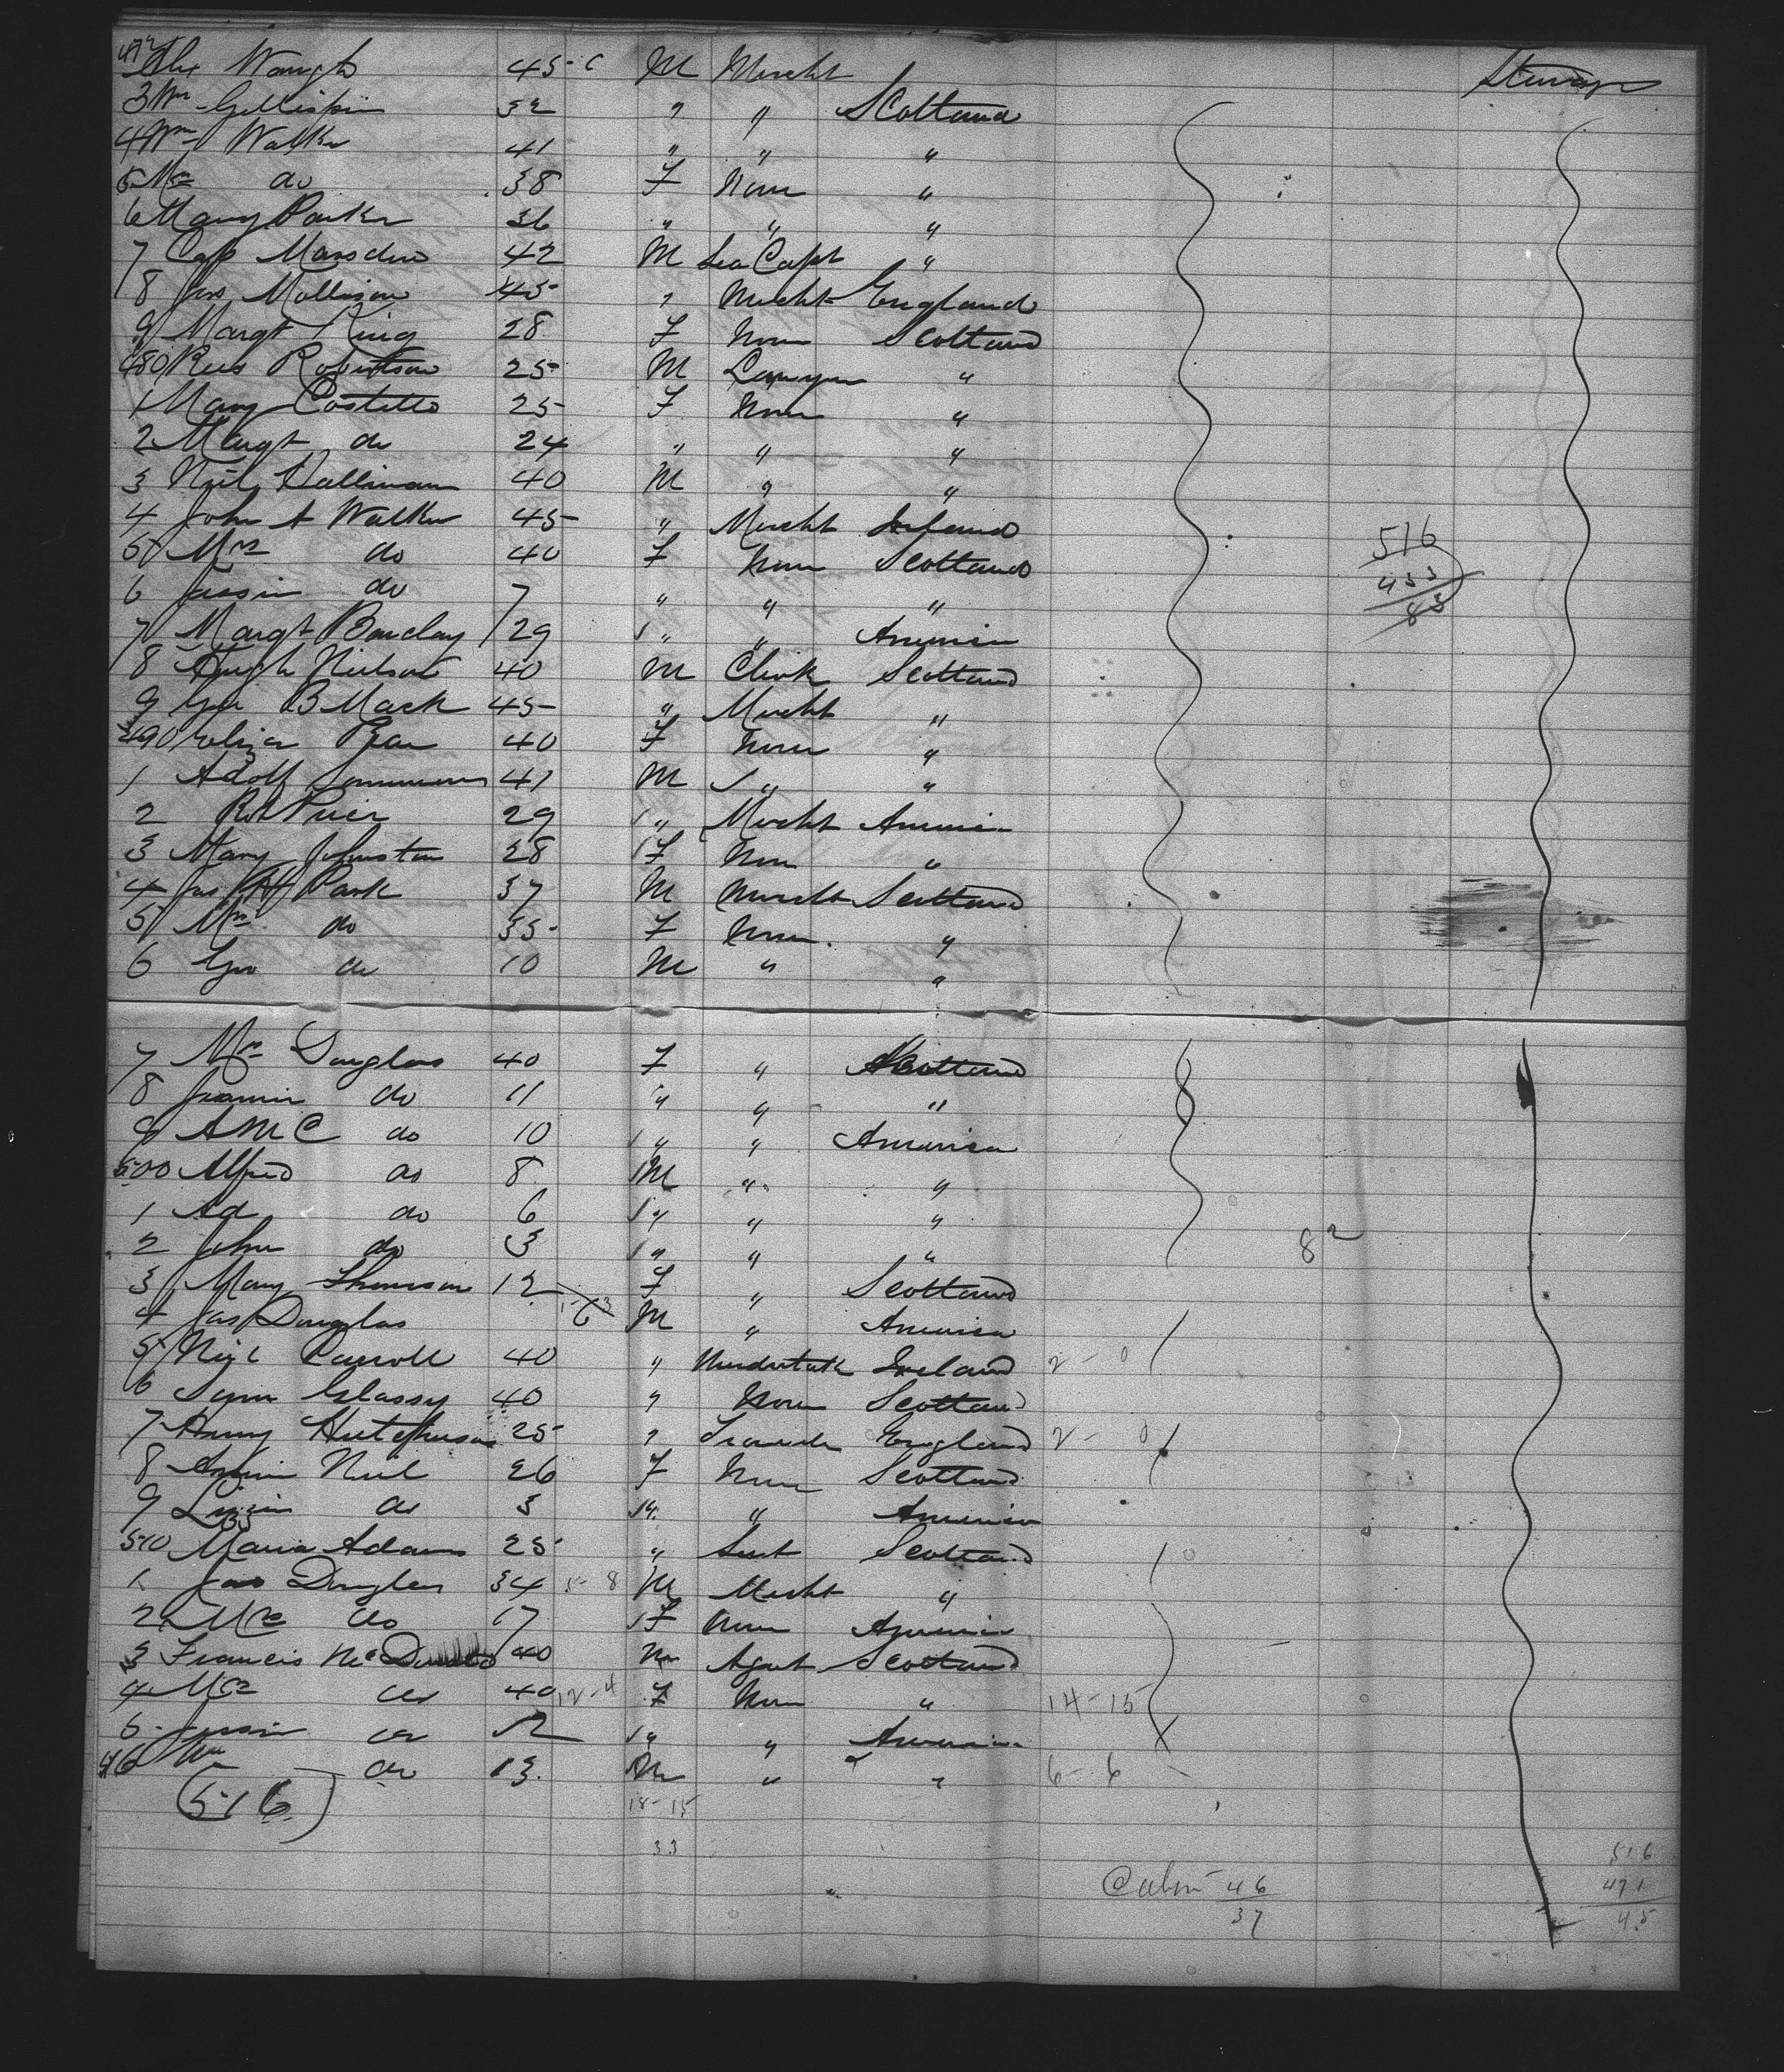 472 Alex Waugh 45 c M Mercht Steerage
3 Wm Gillespie 32 " " Scotland
4 Wm Walker 41 " " "
5 Mrs do 38 F None "
6 Mary Parker 36 " " "
7 Cap Marsden 42 M Sea Capt "
8 Jas Mollison 45 " Mercht England
9 Margt King 28 F None Scotland
480 Robertson 25 M Lawyer "
1 Mary Costello 25 F None "
2 Margt do 24 " " "
3 Neil 40 M " "
4 John A Walker 45 " Mercht Ireland
5 Mrs do 40 F None Scotland
6 Jessie do 7 " " "
7 Margt Barclay 29 " " America
8 Hugh Neilson 40 M Clerk Scotland
9 Geo B Mack 45 " Mercht "
490 Eliza 40 F None "
1 Adolf 41 M " "
2 Rt Price 29 " Mercht America
3 Mary Johnston 28 F None "
4 Jas Park 37 M Mercht Scotland
5 Mrs do 35 F None "
6 Geo do 10 M " "
516
433
83
7 Mrs Douglas 40 F " Scotland
8 Jeannie do 11 " " "
9 A M C do 10 " " America
500 Alfred do 8 M " "
1 Ad do 6 " " "
2 John do 3 " " "
82
3 Mary Thomson 12 F " Scotland
4 Jas Douglas M " America
5 Carroll 40 " Ireland 2-0
6 Glassy 40 " None Scotland
7 Henry Hutchinson 25 " England 2-0
8 Annie Neil 26 F None Scotland
9 Lizzie do 3 " " America
510 Maria Adams 25 " Servt Scotland
1 Jas Douglas 34 5-8 M Mercht "
2 Mrs do 17 F None America
3 Francis Mc 40 M Agent Scotland
4 Mrs do 40 12-4 F None " 14-15
5 Jessie do 12 " " America
516 Wm do 13 M " " 6-6
(516)
18-15
33
Cabin 46
37
516
471
45